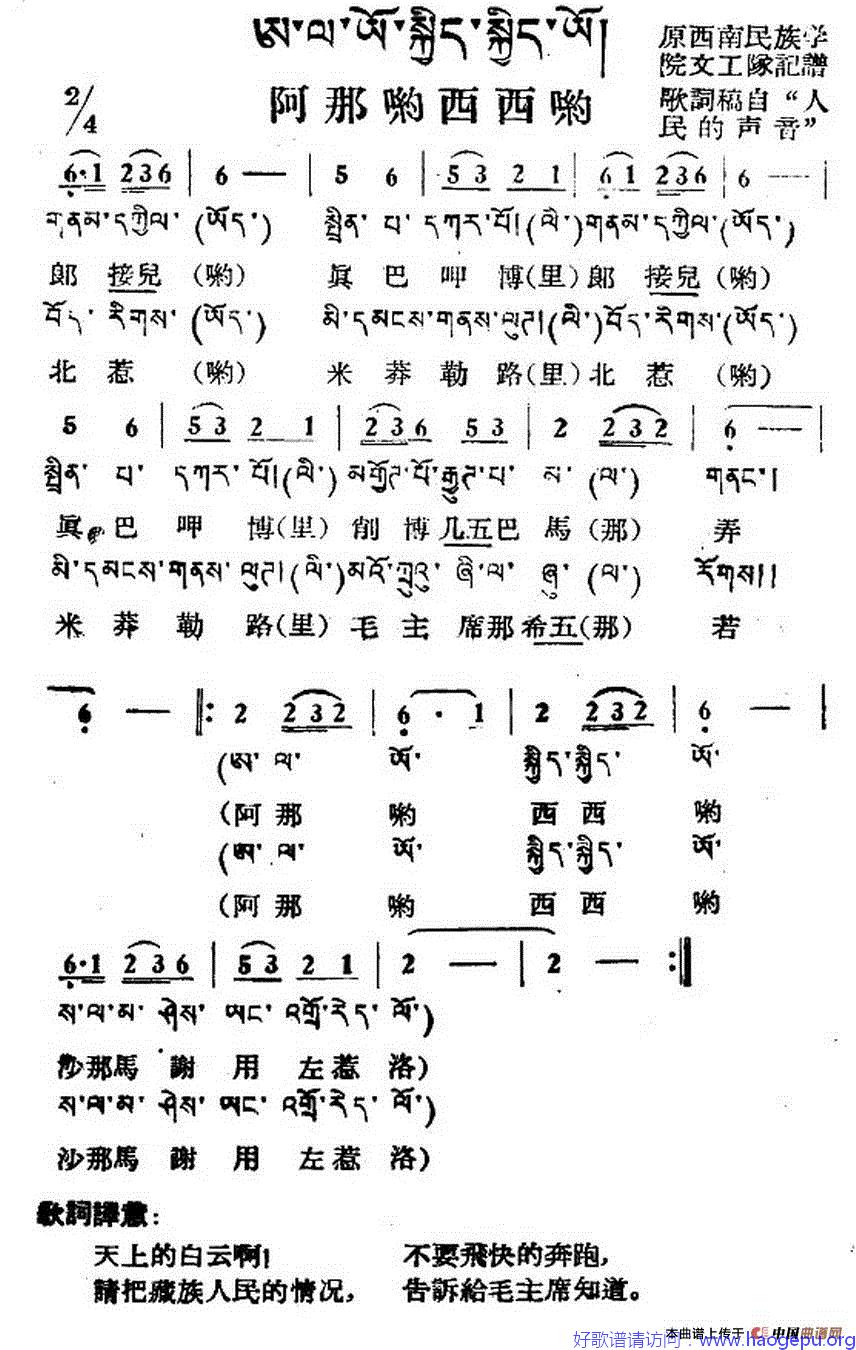 ཨ་ལ་ཡོ་སྐྱིད་སྐྱིད་ཡོ།
阿那喲西西喲
原西南民族学
院文工隊記譜
歌詞稿自“人
民的声音”
2/4
6·1 236 | 6 — | 5 6 | 53 2 1 | 61 236 | 6 — |
གནམ་དཀྱིལ་(ཡོད་) སྤྲིན་པ་དཀར་པོ།(ལི་)གནམ་དཀྱིལ་(ཡོད་)
郞接兒(喲) 眞巴呷博(里)郞接兒(喲)
བོད་རིགས་(ཡོད་) མི་དམངས་གནས་ལུཊ།(ལི་)བོད་རིགས་(ཡོད་)
北惹(喲) 米莽勒路(里)北惹(喲)
5 6 | 53 2 1 | 236 53 | 2 232 | 6 — |
སྤྲིན་པ་དཀར་པོ།(ལི་) མ་(ལ་) གནང་།
眞巴呷博(里)削博几五巴馬(那)弄
མི་དམངས་གནས་(ལི་) ཞུ་(ལ་) རོགས།།
米莽勒路(里)毛主席那希五(那)若
6 — |: 2 232 | 6· 1 | 2 232 | 6 — |
(ཨ་ལ་ཡོ་སྐྱིད་སྐྱིད་ཡོ་
(阿那喲西西喲
(ཨ་ལ་ཡོ་སྐྱིད་སྐྱིད་ཡོ་
(阿那喲西西喲
6·1 236 | 53 2 1 | 2 — | 2 — :|
ས་ལ་མ་ཤེས་ཡང་འགྲོ་རེད་ལོ་)
沙那馬謝用左惹洛)
ས་ལ་མ་ཤེས་ཡང་འགྲོ་རེད་ལོ་)
沙那馬謝用左惹洛)
歌詞譯意:
天上的白云啊! 不要飛快的奔跑,
請把藏族人民的情况, 告訴給毛主席知道。
本曲谱上传于 中国曲谱网
好歌谱请访问:www.haogepu.org